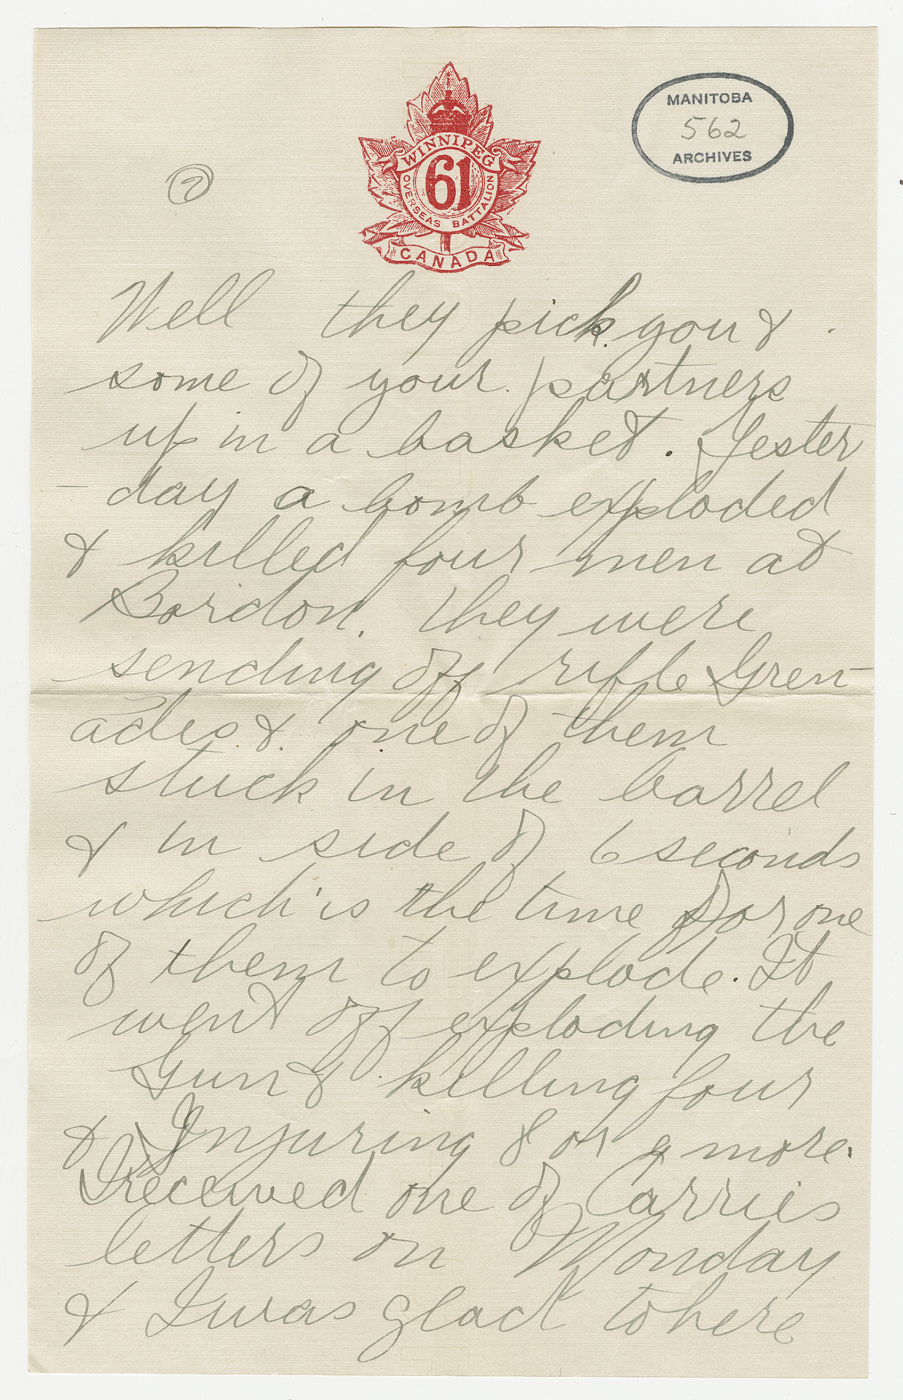 MANITOBA
562
ARCHIVES
WINNIPEG
61
OVERSEAS BATTALION
CANADA
Well they pick you &
some of your partners
up in a basket. Yester
- day a bomb exploded
& killed four men at
Bordon. They were
sending off rifle Gren-
ades & one of them
stuck in the barrel
& in side of 6 seconds
which is the time for one
of them to explode. It
went off exploding the
Gun & killing four
& Injuring 8 or 9 more.
I received one of Carries
letters on Monday
& I was glad to here